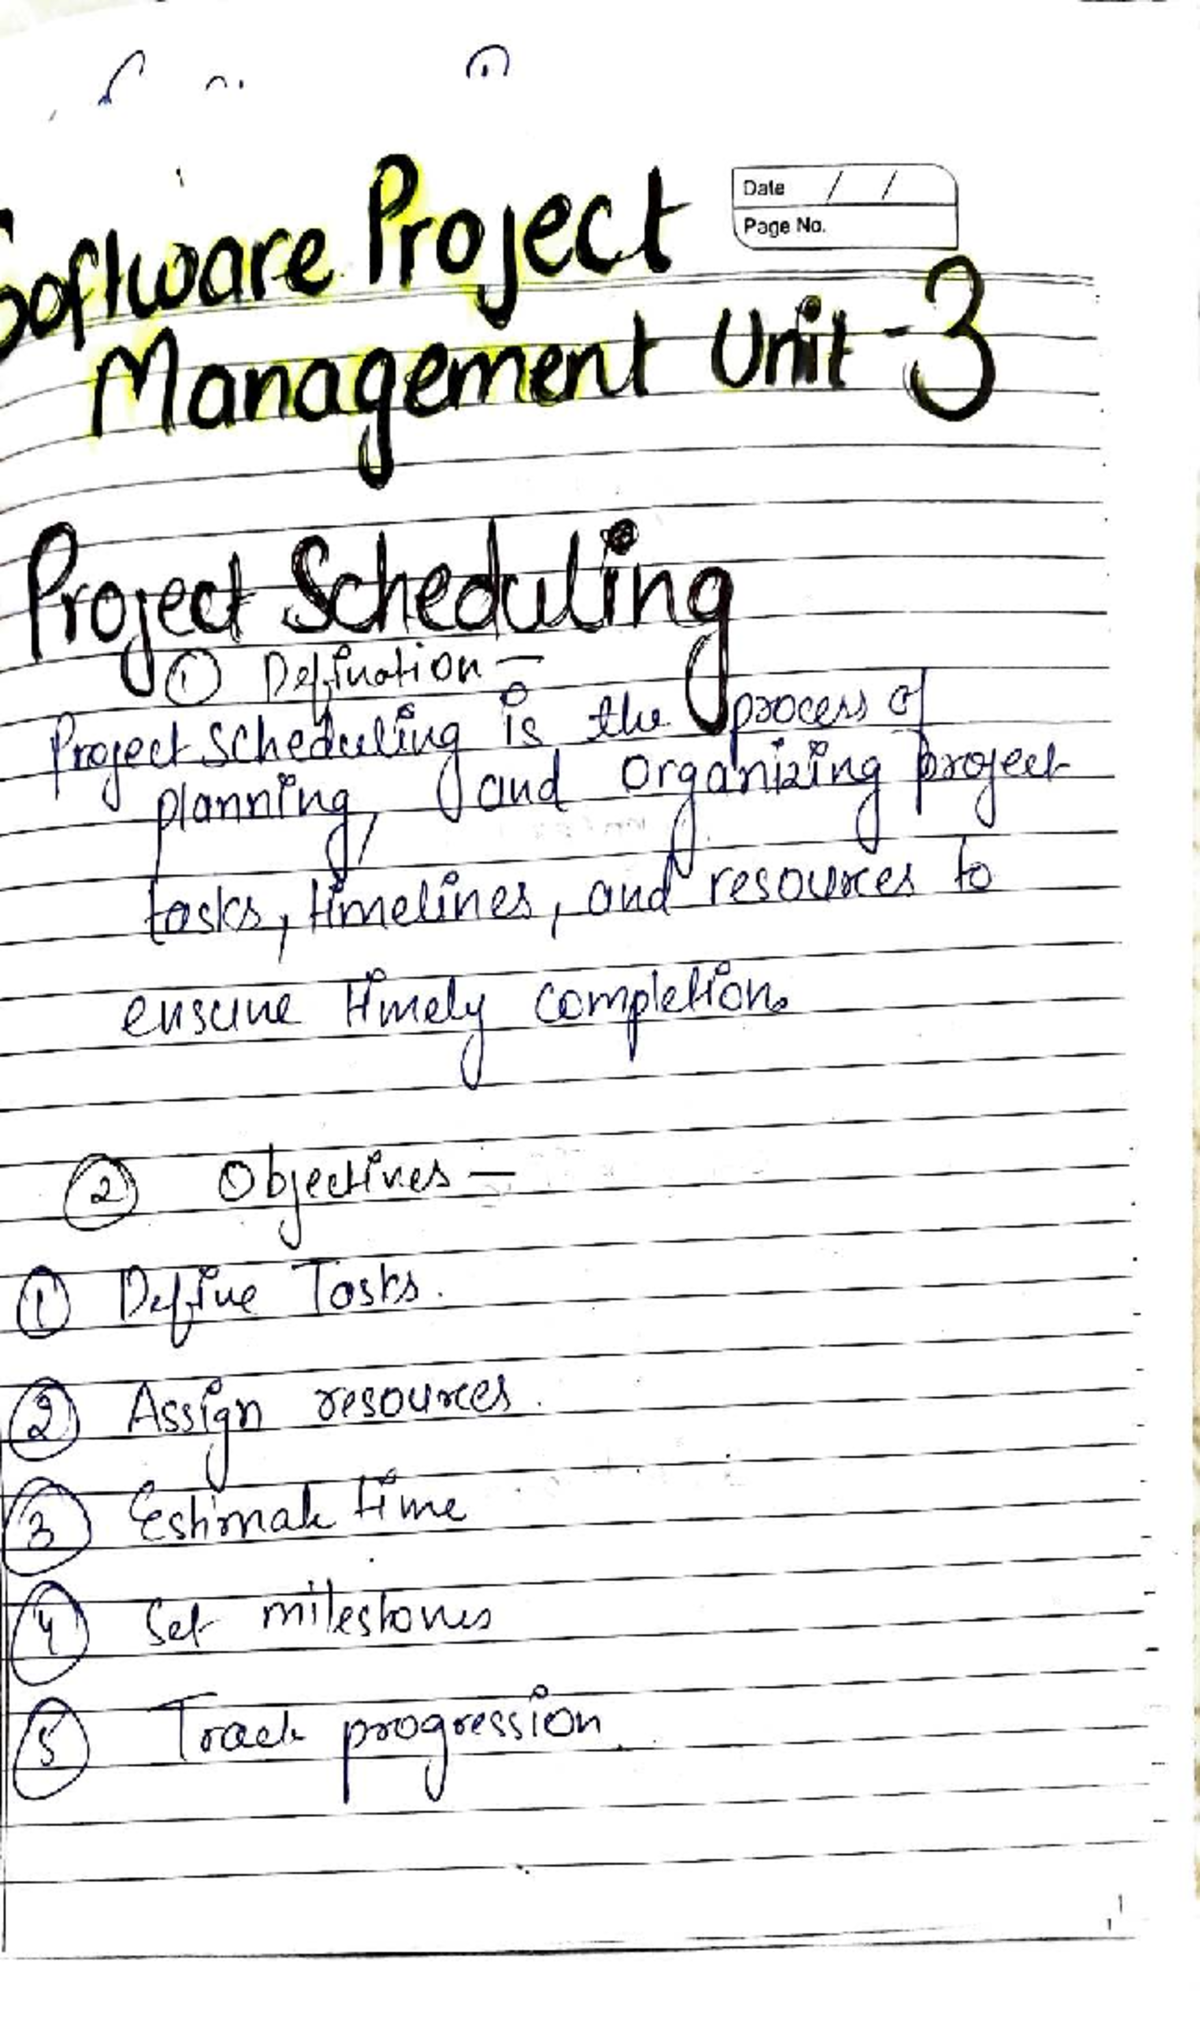 Date / /
Page No.
Software Project
Management Unit - 3
Project Scheduling
① Defination -
Project Scheduling is the process of
planning, and organizing project
tasks, timelines, and resources to
ensure timely completion.
② Objectives -
① Define Tasks.
② Assign resources.
③ Estimate time
④ Set milestones
⑤ Track progression